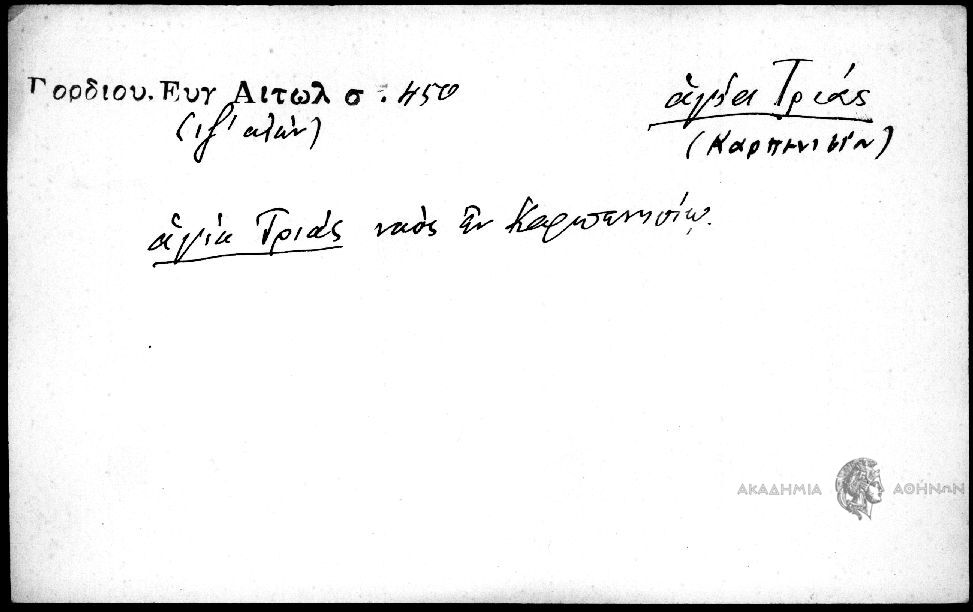 Γορδιου. Ευγ Αιτωλ σ. 450
(ιζ' αἰών)
ἁγία Τριάς
(Καρπενήσιον)
ἁγία Τριάς ναὸς ἐν Καρπενησίῳ.
ΑΚΑΔΗΜΙΑ ΑΘΗΝΩΝ